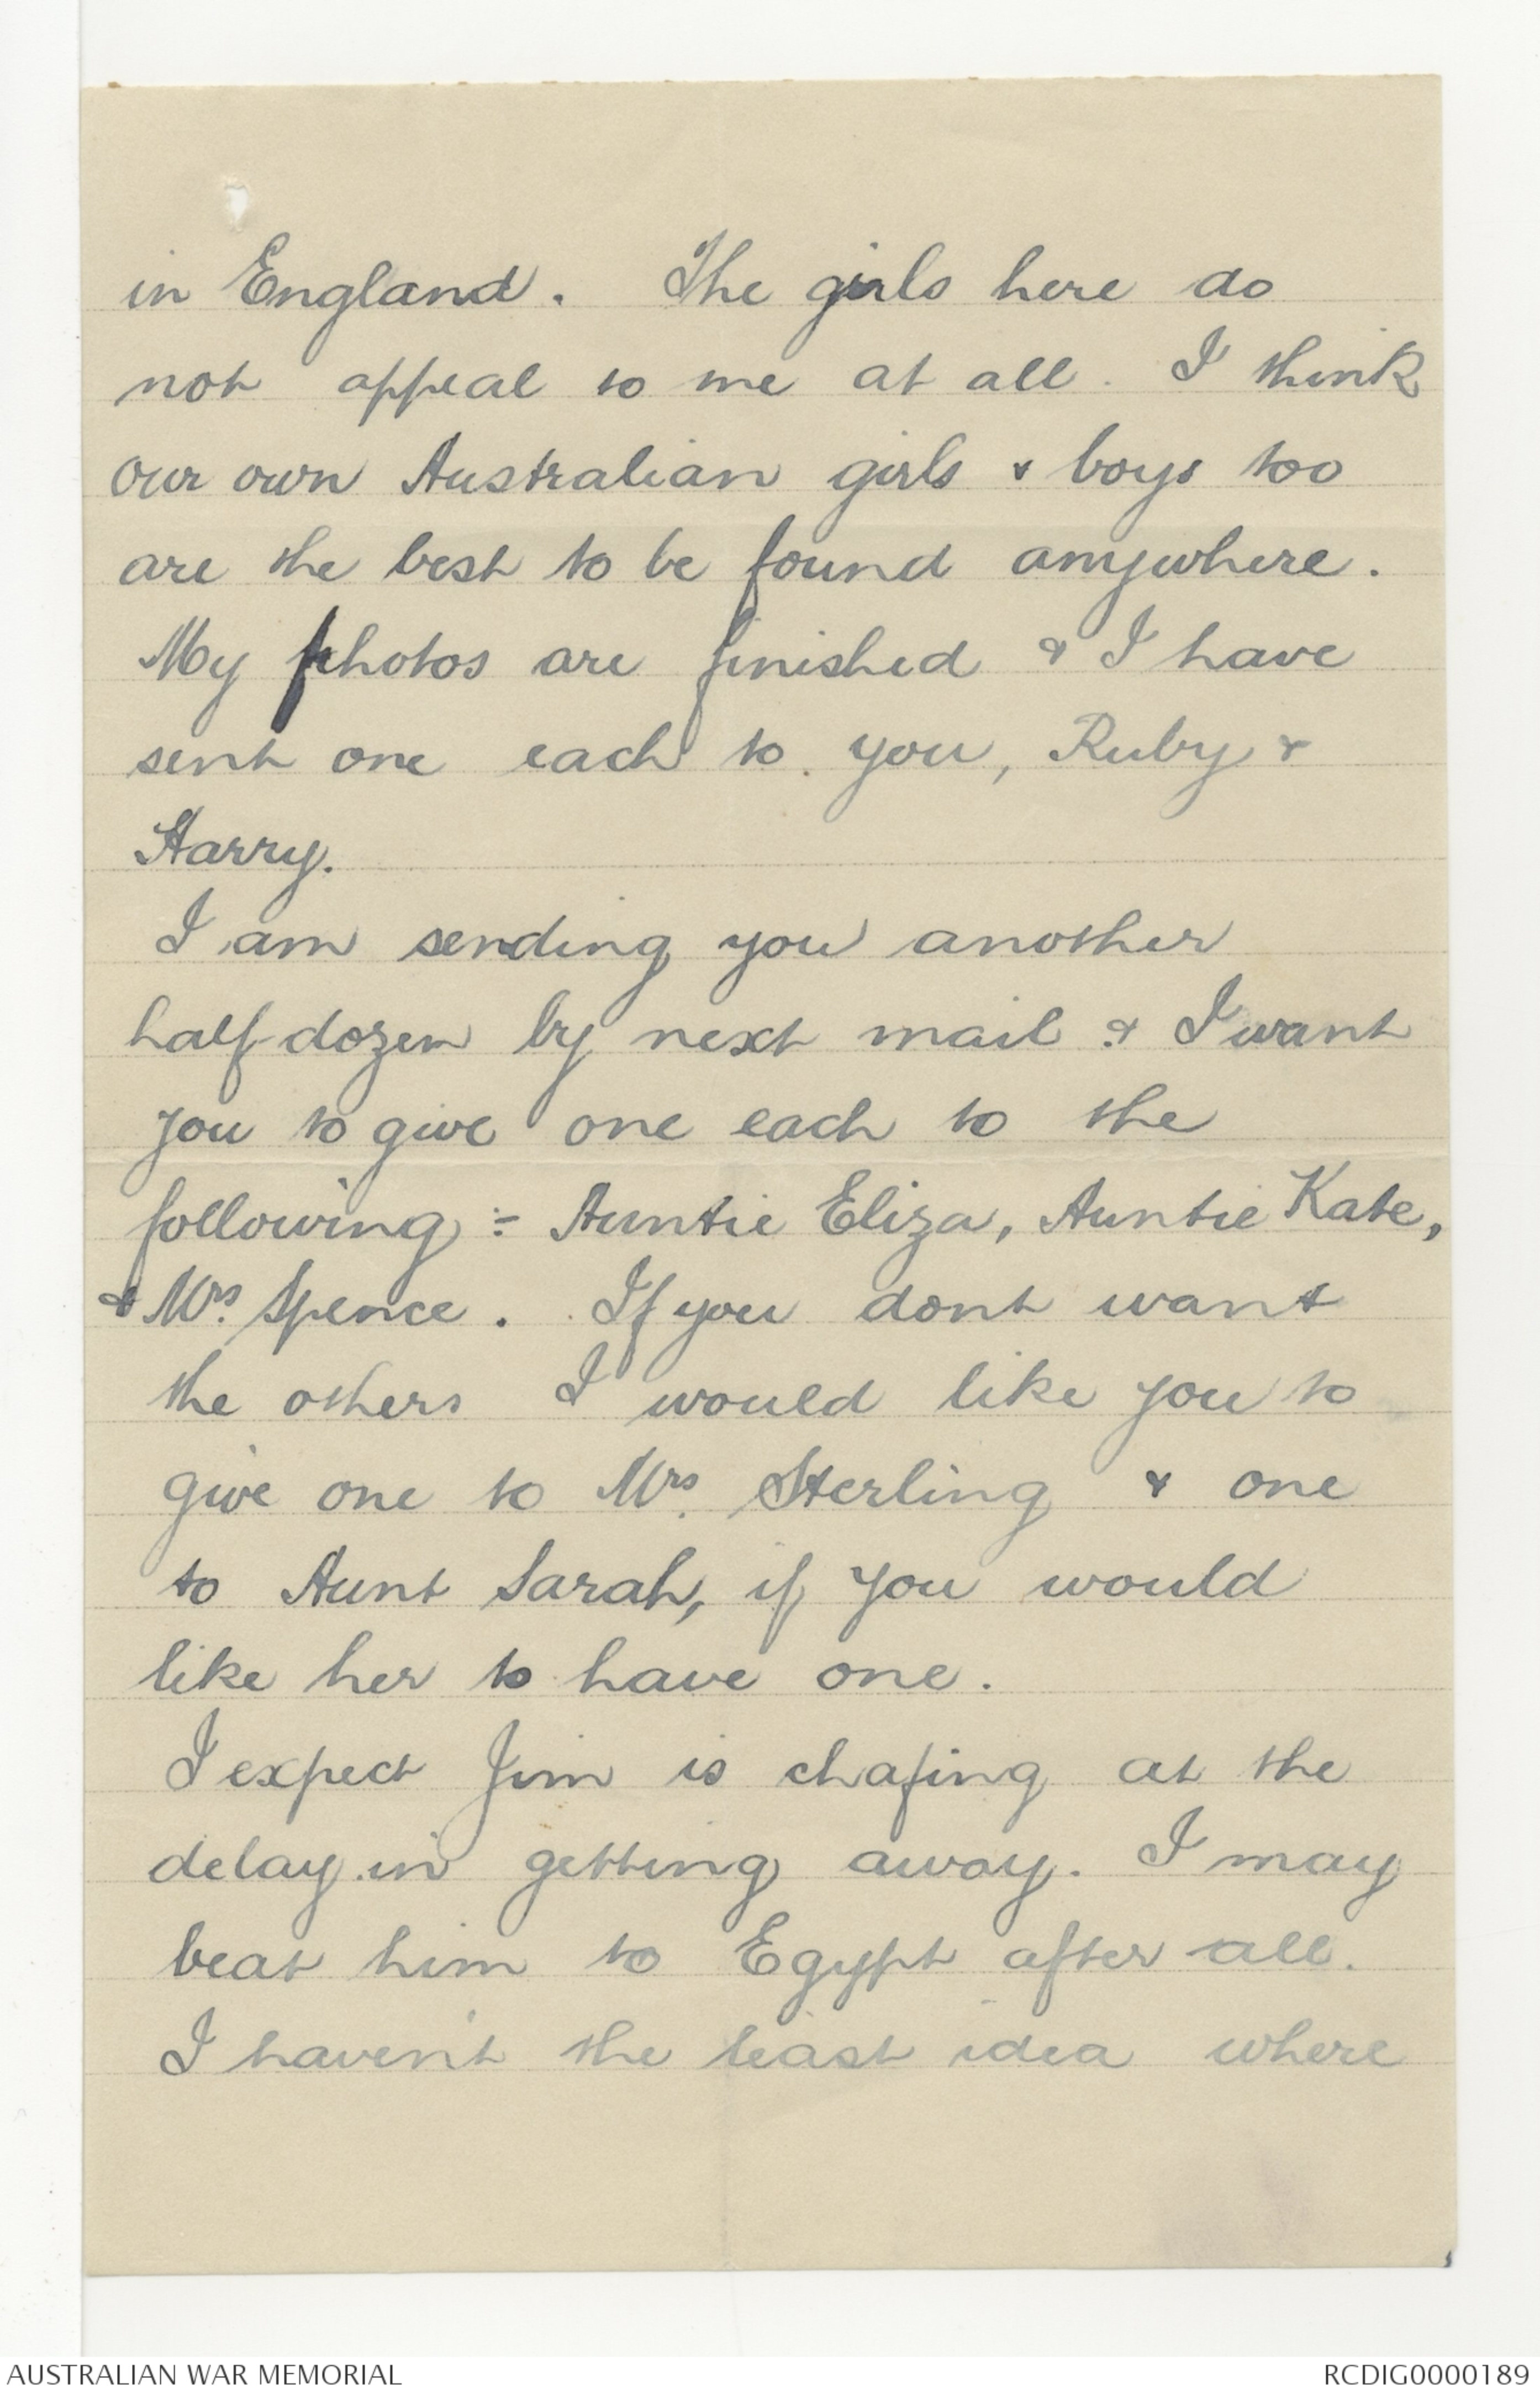 in England. The girls here do
not appeal to me at all. I think
our own Australian girls & boys too
are the best to be found anywhere.
My photos are finished & I have
sent one each to you, Ruby &
Harry.
I am sending you another
half-dozen by next mail & I want
you to give one each to the
following :- Auntie Eliza, Auntie Kate,
& Mrs. Spence. If you dont want
the others I would like you to
give one to Mrs. Sterling & one
to Aunt Sarah, if you would
like her to have one.
I expect Jim is chafing at the
delay in getting away. I may
beat him to Egypt after all.
I haven't the least idea where
AUSTRALIAN WAR MEMORIAL
RCDIG0000189